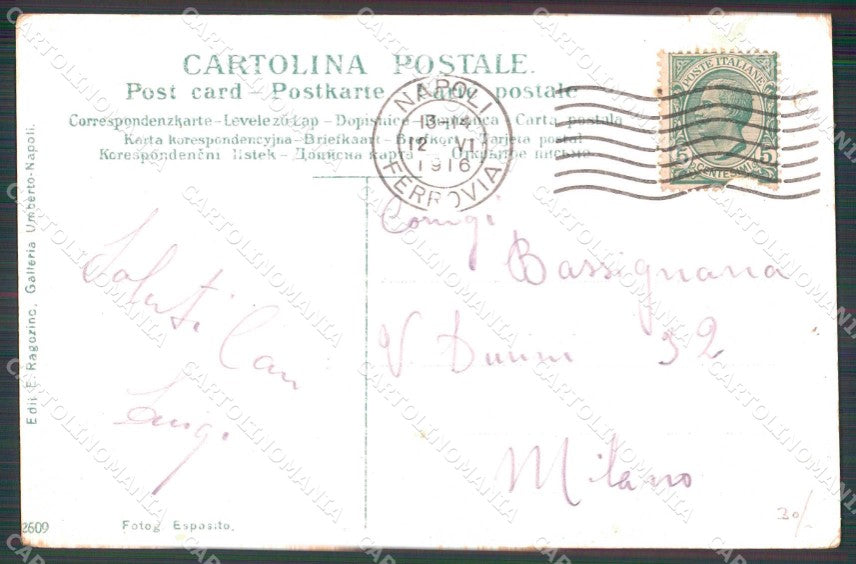 CARTOLINA POSTALE.
Post card - Postkarte - Carte postale
Correspondenzkarte - Levelező Lap - Dopisnice - Carta postala
Karta korespondencyjna - Briefkaart - Brefkort - Tarjeta postal
Korespondenční listek - Дописна карта - Открытое письмо
NAPOLI
13-14
12 VI
1916
FERROVIA
POSTE ITALIANE
5 5
CENTESIMI
Edit. E. Ragozino, Galleria Umberto-Napoli.
Saluti Cari
Luigi
Coniugi
Bassignana
V. Durini 32
Milano
30/-
2609
Fotog. Esposito.
CARTOLINOMANIA